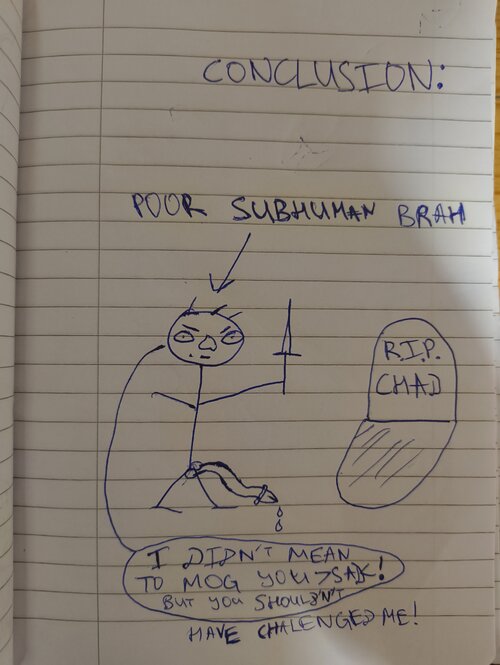 CONCLUSION:
POOR SUBHUMAN BRAH
R.I.P.
CHAD
I DIDN'T MEAN
TO MOG YOU >SAK!
BUT YOU SHOULDN'T
HAVE CHALENGED ME!